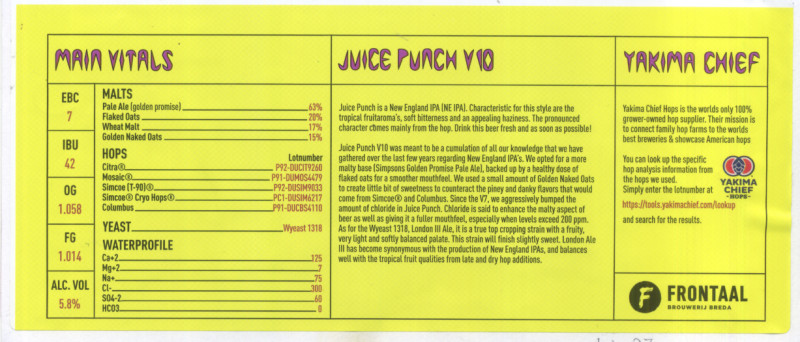 MAIN VITALS
EBC
7
IBU
42
OG
1.058
FG
1.014
ALC. VOL
5.8%
MALTS
Pale Ale (golden promise) 63%
Flaked Oats 20%
Wheat Malt 17%
Golden Naked Oats 15%
HOPS Lotnumber
Citra® P92-DUCIT9260
Mosaic® P91-DUMOS4479
Simcoe (T-90)® P92-DUSIM9033
Simcoe® Cryo Hops® PC1-DUSIM6217
Columbus P91-DUCBS4110
YEAST Wyeast 1318
WATERPROFILE
Ca+2 125
Mg+2 7
Na+ 75
Cl- 300
SO4-2 60
HCO3 0
JUICE PUNCH V10
Juice Punch is a New England IPA (NE IPA). Characteristic for this style are the
tropical fruitaroma's, soft bitterness and an appealing haziness. The pronounced
character comes mainly from the hop. Drink this beer fresh and as soon as possible!
Juice Punch V10 was meant to be a cumulation of all our knowledge that we have
gathered over the last few years regarding New England IPA's. We opted for a more
malty base (Simpsons Golden Promise Pale Ale), backed up by a healthy dose of
flaked oats for a smoother mouthfeel. We used a small amount of Golden Naked Oats
to create little bit of sweetness to counteract the piney and danky flavors that would
come from Simcoe® and Columbus. Since the V7, we aggressively bumped the
amount of chloride in Juice Punch. Chloride is said to enhance the malty aspect of
beer as well as giving it a fuller mouthfeel, especially when levels exceed 200 ppm.
As for the Wyeast 1318, London III Ale, it is a true top cropping strain with a fruity,
very light and softly balanced palate. This strain will finish slightly sweet. London Ale
III has become synonymous with the production of New England IPAs, and balances
well with the tropical fruit qualities from late and dry hop additions.
YAKIMA CHIEF
Yakima Chief Hops is the worlds only 100%
grower-owned hop supplier. Their mission is
to connect family hop farms to the worlds
best breweries & showcase American hops
You can look up the specific
hop analysis information from
the hops we used.
Simply enter the lotnumber at
https://tools.yakimachief.com/lookup
and search for the results.
YAKIMA
CHIEF
-HOPS-
FRONTAAL
BROUWERIJ BREDA